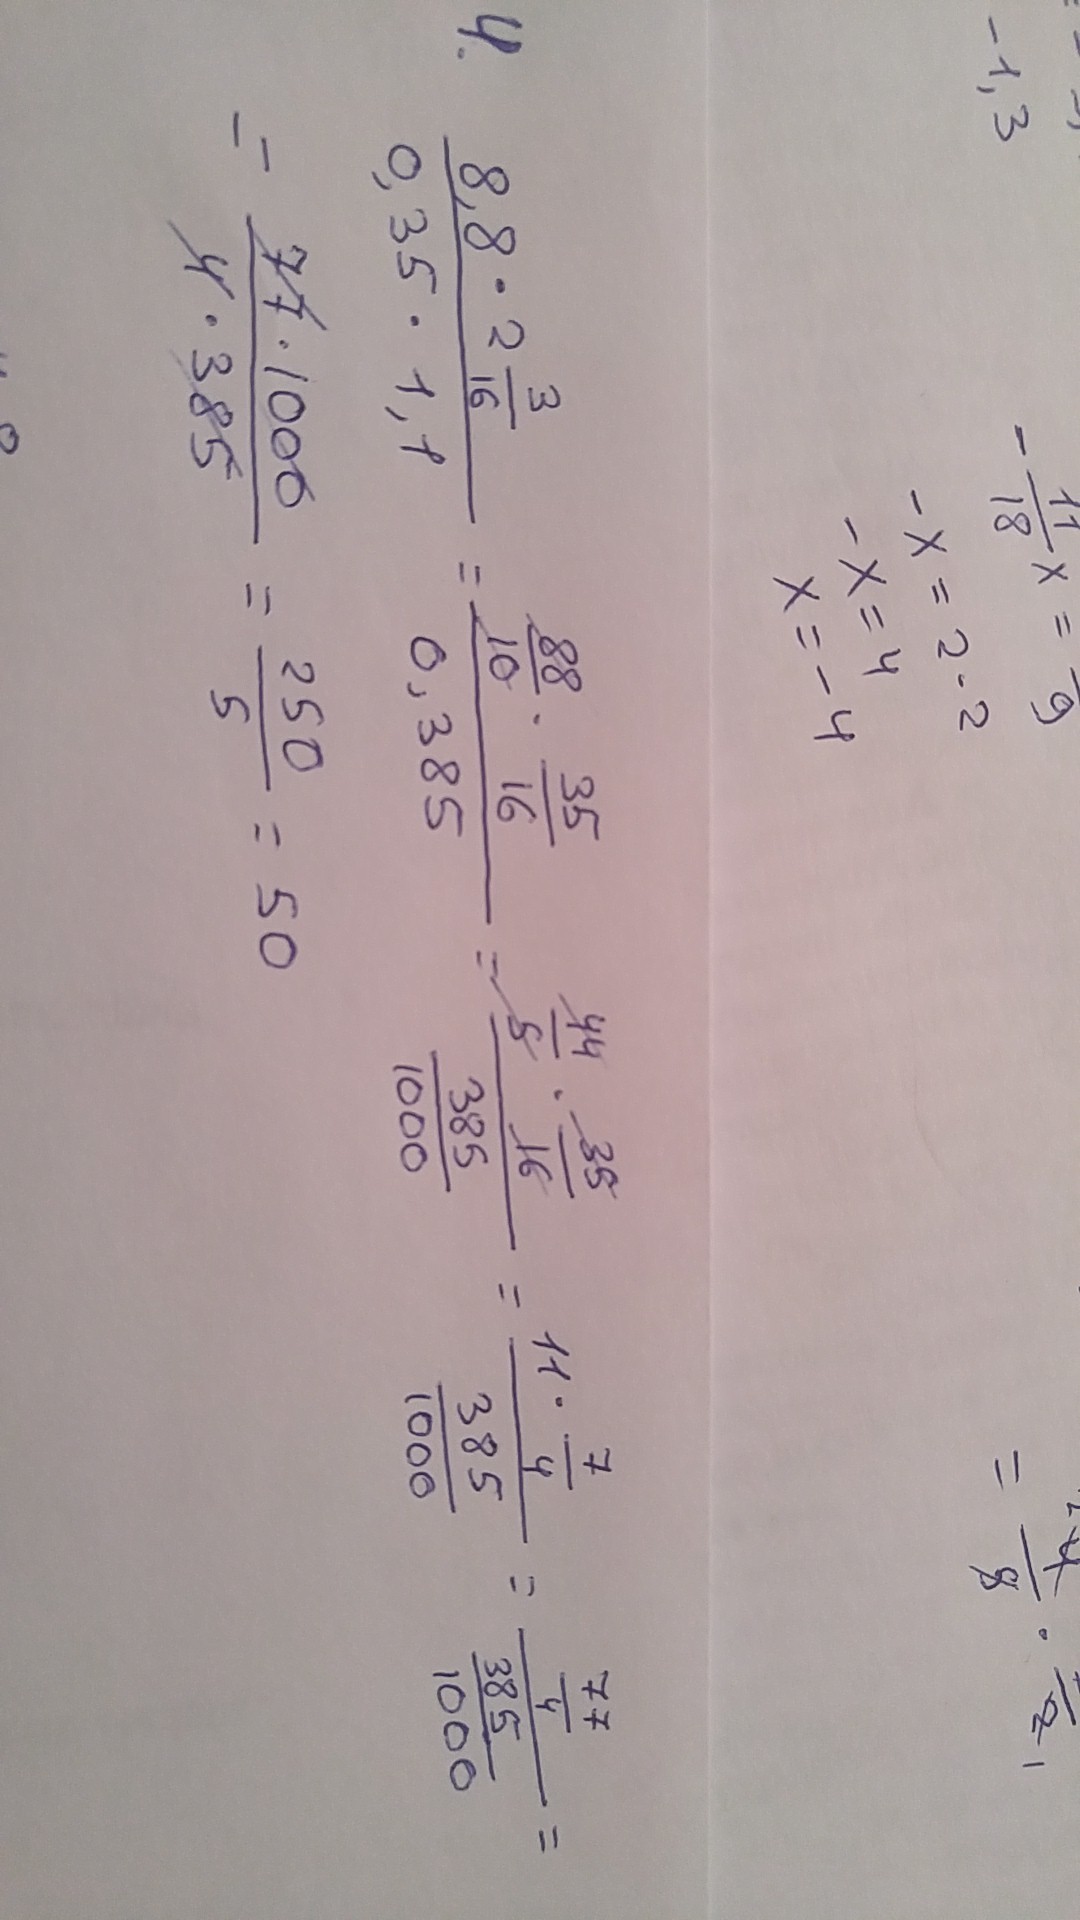 -1,3
- 11/18 x = /9
-x = 2·2
-x = 4
x = -4
= /8 · /2
4. (8,8 · 2 3/16)/(0,35 · 1,1) = (88/10 · 35/16)/(0,385) = (44/5 · 35/16)/(385/1000) = (11 · 7/4)/(385/1000) = (77/4)/(385/1000) =
= (77 · 1000)/(4 · 385) = 250/5 = 50